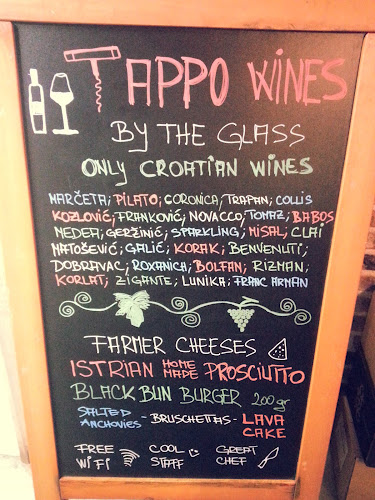 TAPPO WINES
BY THE GLASS
ONLY CROATIAN WINES
MARČETA; PILATO; CORONICA; TRAPAN; COLLIS
KOZLOVIĆ; FRANKOVIĆ; NOVACCO; TOMAZ; BABOS
MEDEA; GERŽINIĆ; SPARKLING; MISAL; CLAI
MATOŠEVIĆ; GALIĆ; KORAK; BENVENUTI;
DOBRAVAC; ROXANICA; BOLFAN; RIZMAN;
KORLAT; ZIGANTE; LUNIKA; FRANC ARMAN
FARMER CHEESES
ISTRIAN HOME MADE PROSCIUTTO
BLACK BUN BURGER 200 gr
SALTED ANCHOVIES - BRUSCHETTAS - LAVA CAKE
FREE WIFI COOL STAFF GREAT CHEF